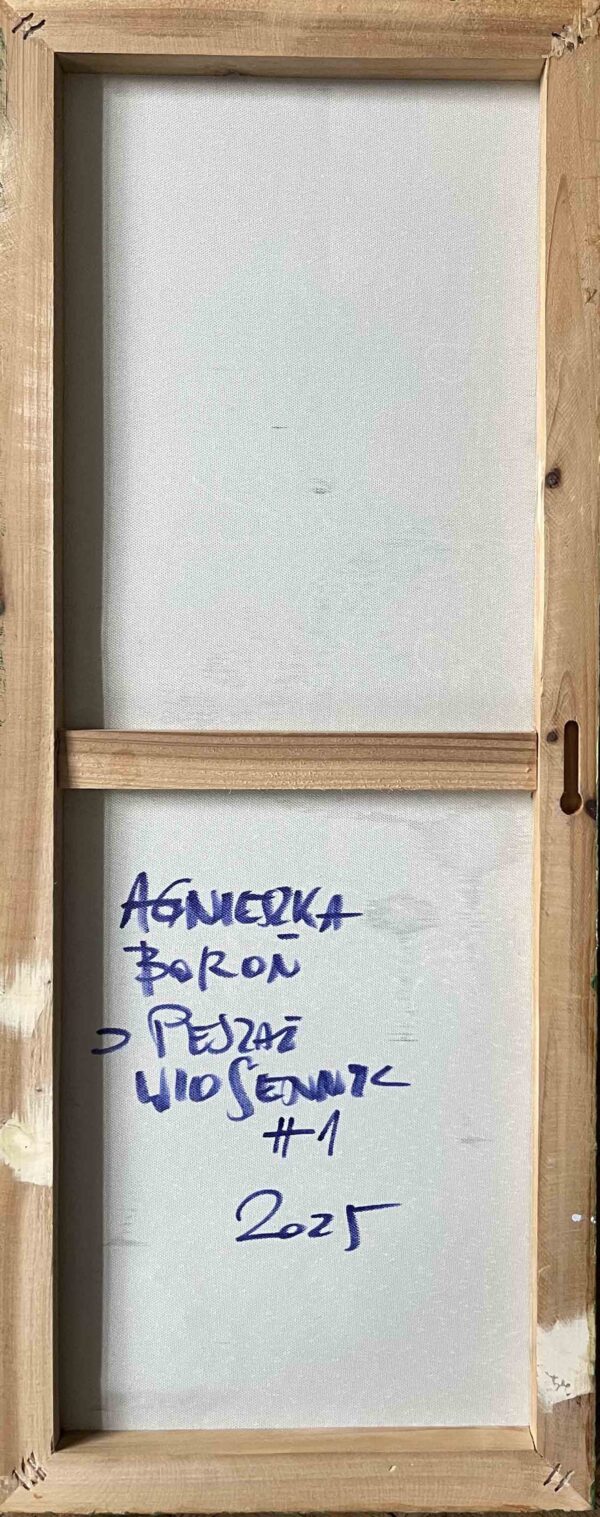 AGNIESZKA
BOROŃ
PEJZAŻ
WIOSENNY
#1
2025